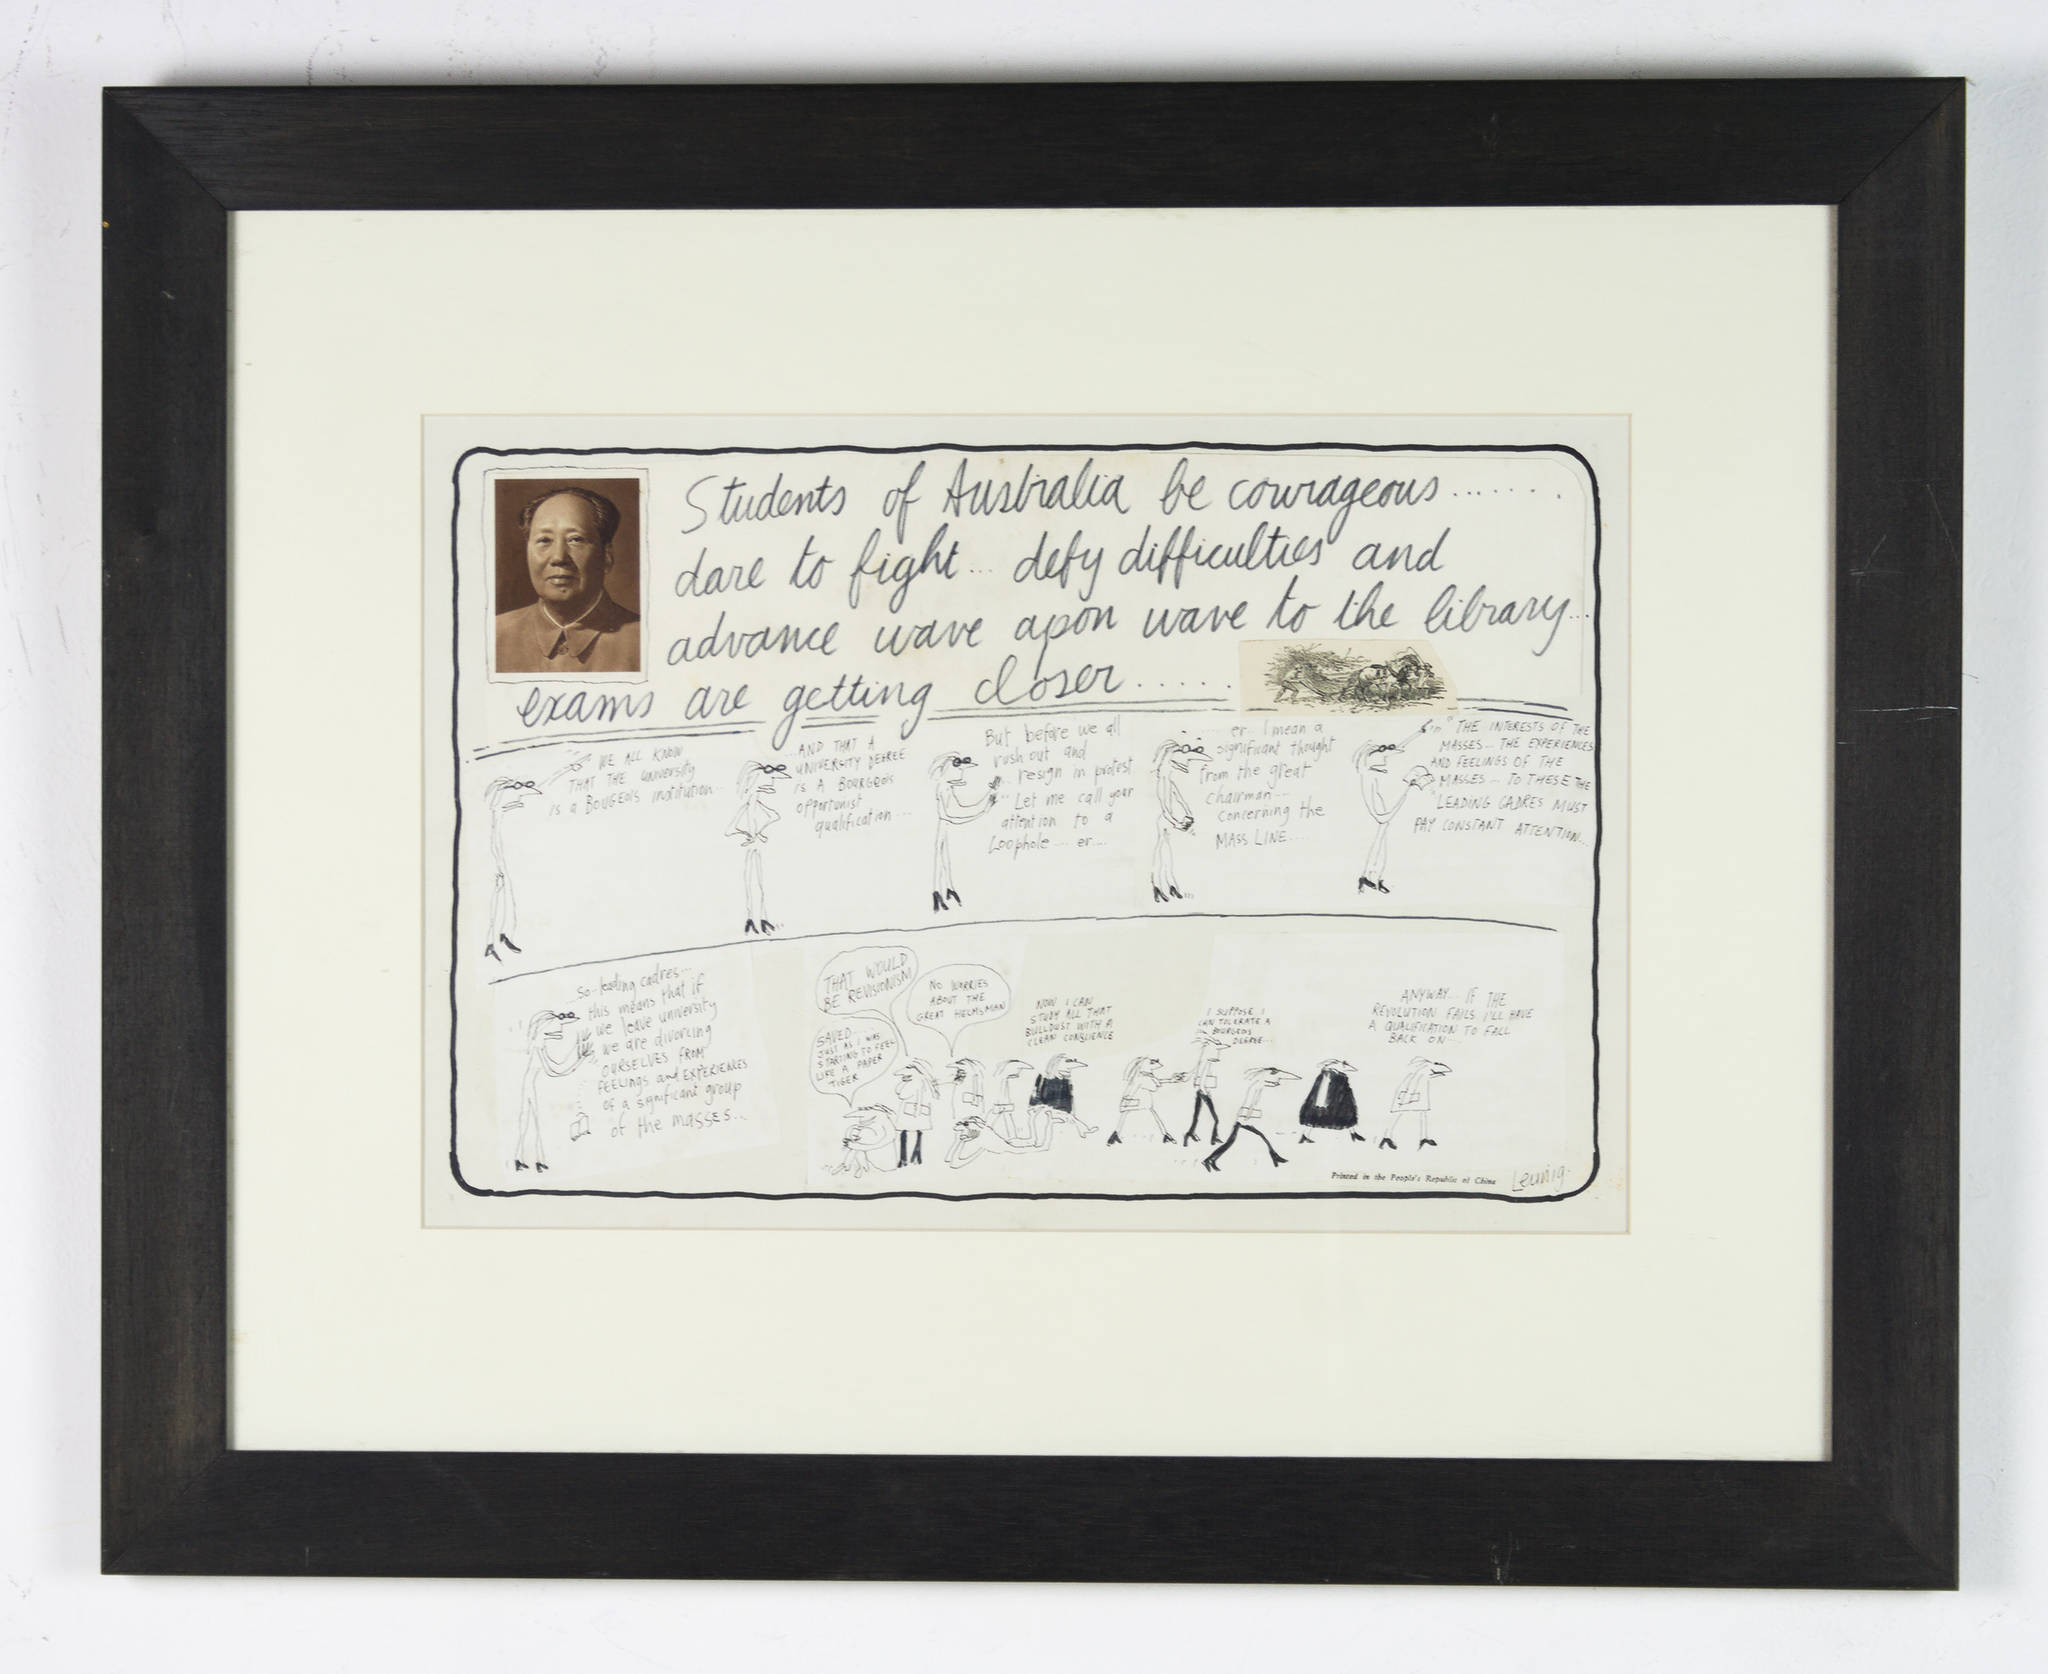 Students of Australia be courageous.......
dare to fight... defy difficulties and
advance wave apon wave to the library...
exams are getting closer.....
"WE ALL KNOW
THAT THE university
is a BOUGEOIS institution...
...AND THAT A
UNIVERSITY DEGREE
IS A BOURGEOIS
opportunist
qualification...
But before we all
rush out and
... resign in protest
... Let me call your
attention to a
Loophole... er....
..... er.. I mean a
significant thought
from the great
chairman...
concerning the
MASS LINE.....
"THE INTERESTS OF THE
MASSES... THE EXPERIENCES
AND FEELINGS OF THE
MASSES... TO THESE THE
LEADING CADRES MUST
PAY CONSTANT ATTENTION...
...So-leading cadres...
this means that if
we leave university
we are divorcing
OURSELVES FROM
FEELINGS and EXPERIENCES
of a significant group
of the masses...
THAT WOULD
BE REVISIONISM
SAVED....
JUST AS I WAS
STARTING TO FEEL
LIKE A PAPER
TIGER
NO WORRIES
ABOUT THE
GREAT HELMSMAN
NOW I CAN
STUDY ALL THAT
BULLDUST WITH A
CLEAN CONSCIENCE
I SUPPOSE I
CAN TOLERATE A
BOURGEOIS
DEGREE...
ANYWAY... IF THE
REVOLUTION FAILS I'LL HAVE
A QUALIFICATION TO FALL
BACK ON....
Printed in the People's Republic of China
Leunig.